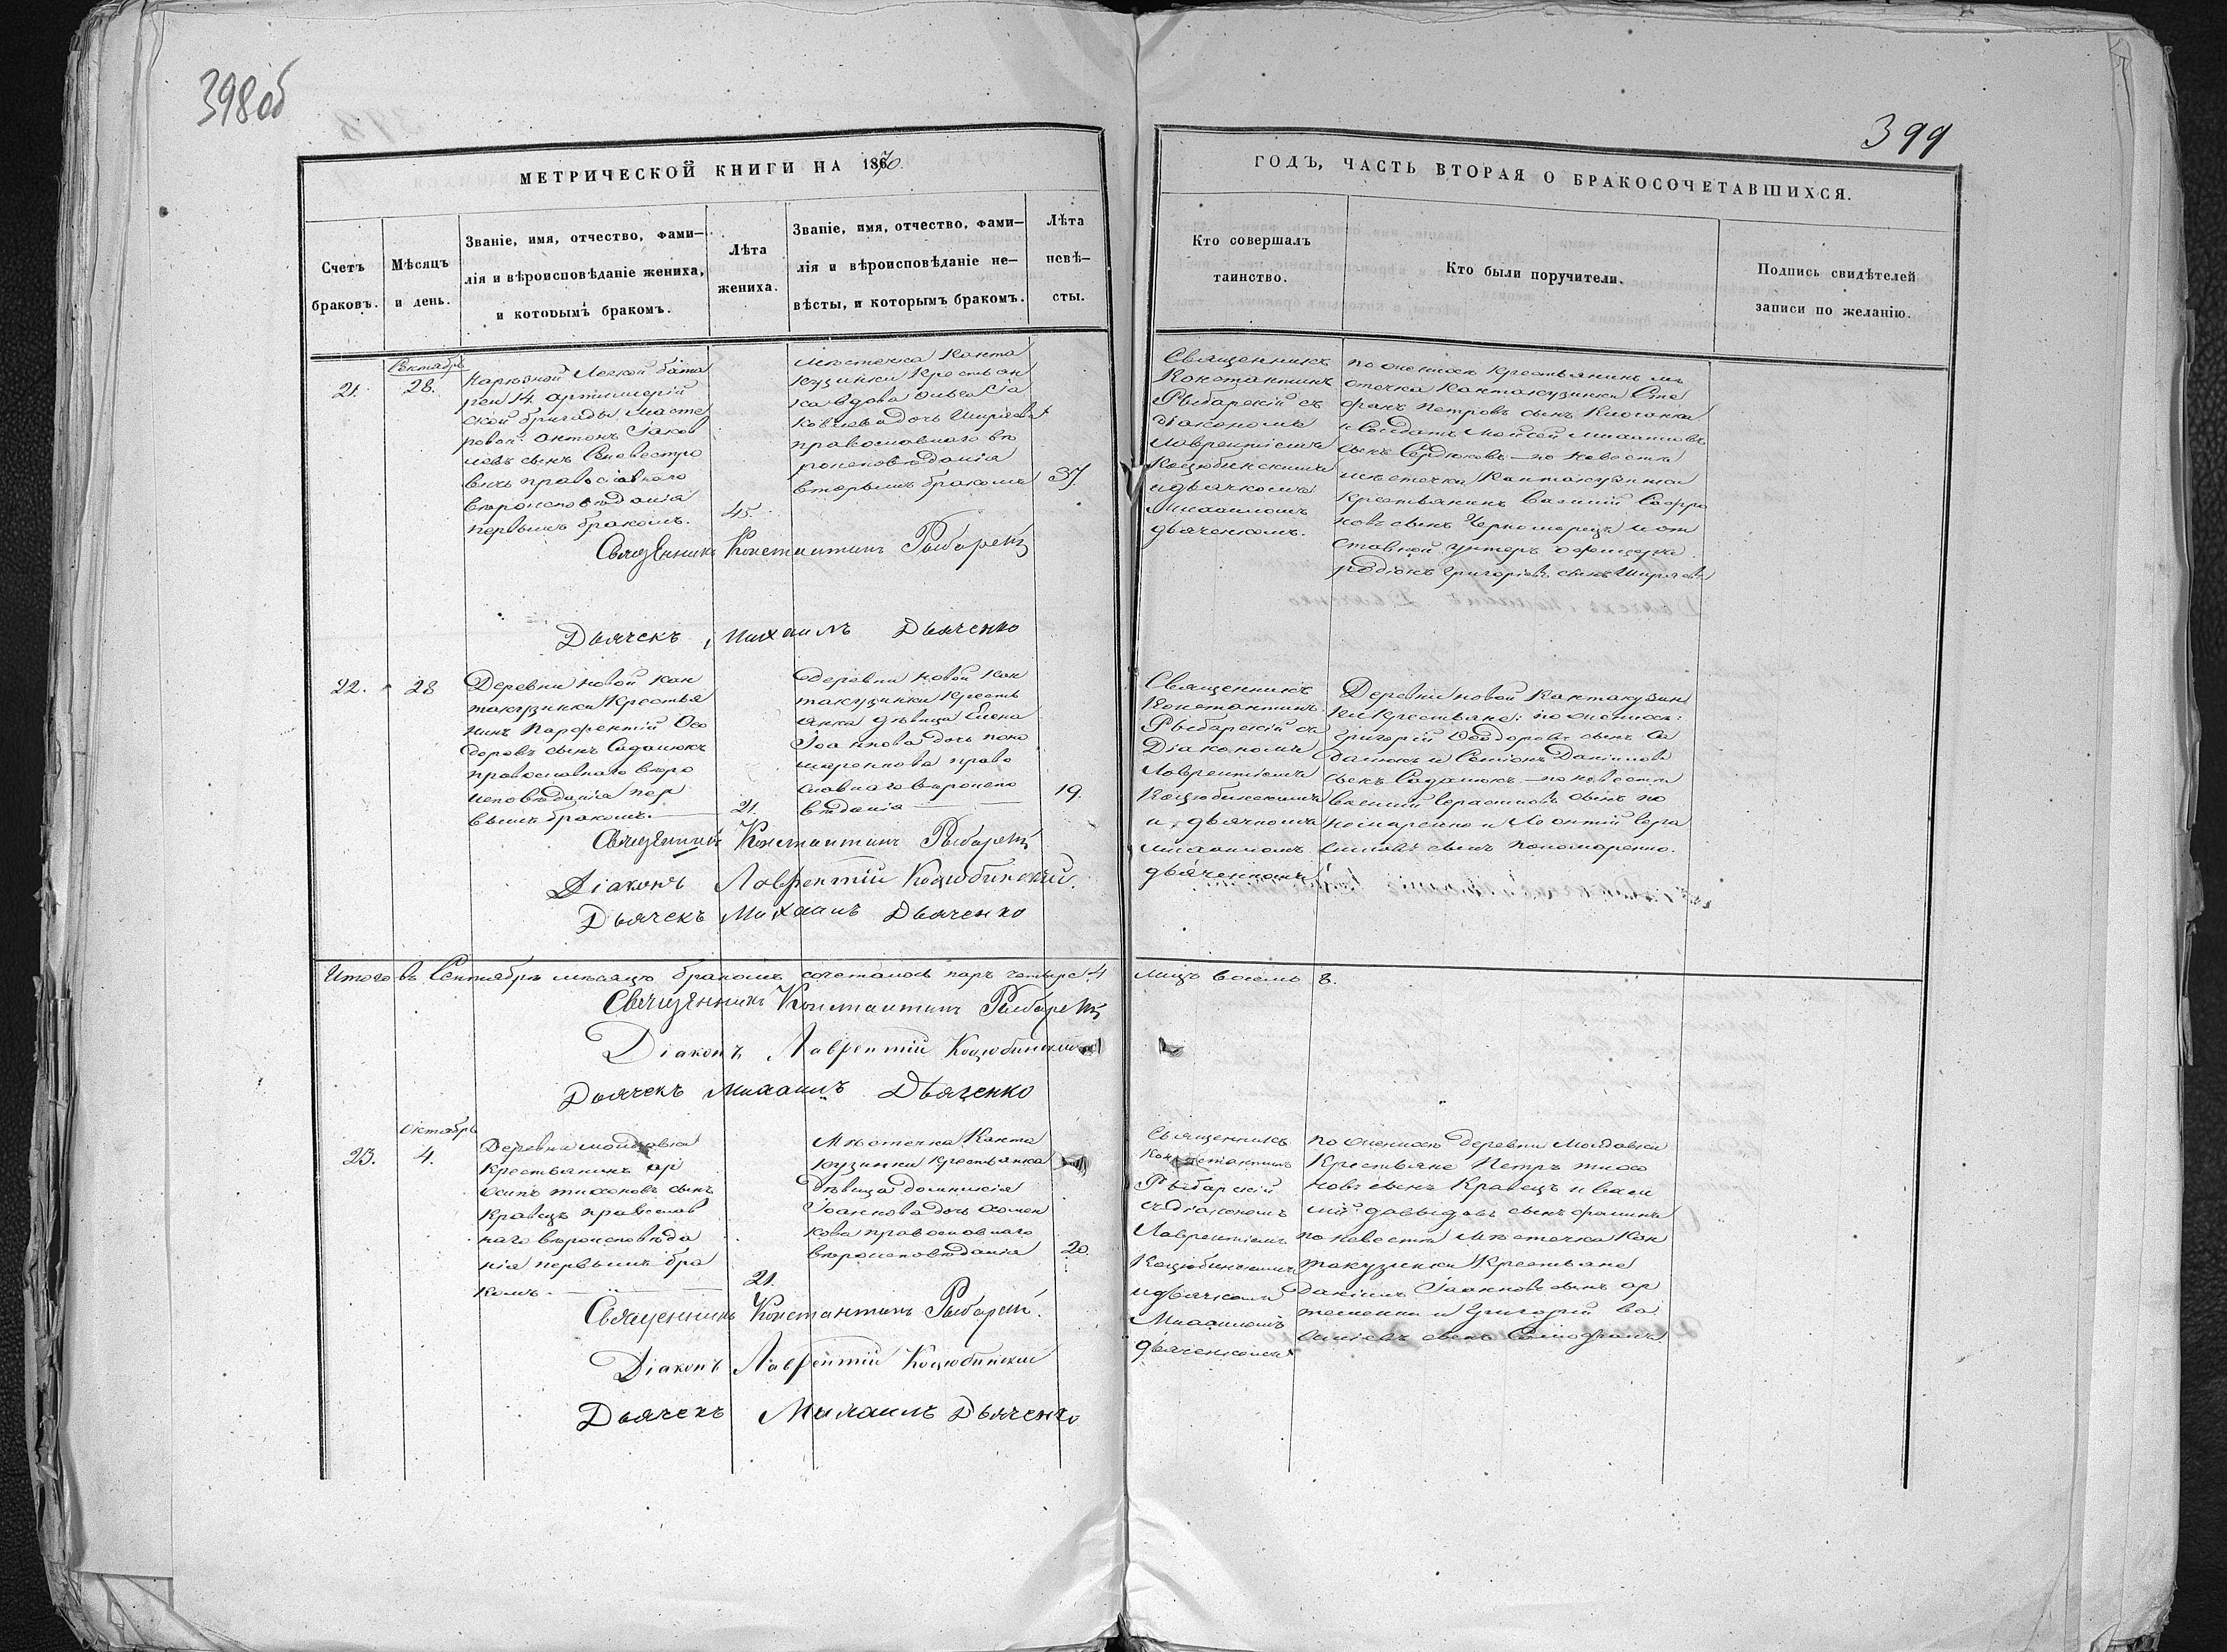 398об
399
МЕТРИЧЕСКОЙ КНИГИ НА 1870.
ГОДЪ, ЧАСТЬ ВТОРАЯ О БРАКОСОЧЕТАВШИХСЯ.
Счетъ
браковъ.
Мѣсяцъ
и день.
Званіе, имя, отчество, фами-
лія и вѣроисповѣданіе жениха,
и которымъ бракомъ.
Лѣта
жениха.
Званіе, имя, отчество, фами-
лія и вѣроисповѣданіе не-
вѣсты, и которымъ бракомъ.
Лѣта
невѣ-
сты.
Кто совершалъ
таинство.
Кто были поручители.
Подпись свидѣтелей
записи по желанію.
21.
Сентябрь
28.
легкой бата
реи 14 артиллерій
ской бригады масте
ровой антонъ Іаков
левъ сынъ
вичъ православнаго
вѣроисповѣданія
первымъ бракомъ.
45.
Мѣстечка Канта
кузинки крестьян
ка вдова Іа
ковлева дочь
православнаго вѣ
роисповѣданія
вторымъ бракомъ
37.
Священникъ
Константинъ
Рыбарскій съ
діакономъ
Лаврентіемъ
Коцюбинскимъ
и дьячкомъ
Михаиломъ
Дьяченкомъ.
по женихѣ крестьянинъ мѣ
стечка Кантакузинки Сте
фанъ Петровъ сынъ
и Солдатъ Мойсей Михаиловъ
сынъ Сердюковъ — по невѣстѣ
мѣстечка Кантакузинки
Крестьянинъ Василій Софро
новъ сынъ Черноморецъ и от
ставной унтеръ офицеръ
родіонъ григоріевъ сынъ
Священникъ Константинъ Рыбарскій
Дьячекъ Михаилъ Дьяченко
22.
28
Деревни новой Кан
такузинки Крестья
нинъ Парфентій Ѳео
доровъ сынъ Садалюкъ
православнаго вѣро
исповѣданія пер
вымъ бракомъ.
21.
Деревни новой Кан
такузинки кресть
янка дѣвица Елена
Іоаннова дочь поно
маренкова право
славнаго вѣроиспо
вѣданія
19.
Священникъ
Константинъ
Рыбарскій съ
Діакономъ
Лаврентіемъ
Коцюбинскимъ
и дьячкомъ
Михаиломъ
дьяченкомъ
Деревни новой Кантакузин
ки крестьяне: по женихѣ:
григорій Ѳеодоровъ сынъ Са
далюкъ и Семіонъ Даніилов
сынъ Садалюкъ — по невѣстѣ
Василій Герасимовъ сынъ по
номаренко и Леонтій Гера
симовъ сынъ пономаренко.
Священникъ Константинъ Рыбарскій
Діаконъ Лаврентій Коцюбинскій.
Дьячекъ Михаилъ Дьяченко
Итого въ Сентябрѣ мѣсяцѣ бракомъ сочеталось паръ четыре 4 лицъ восемь 8.
Священникъ Константинъ Рыбарскій
Діаконъ Лаврентій Коцюбинскій
Дьячекъ Михаилъ Дьяченко
23.
Октябрь
4.
Деревни молдавки
Крестьянинъ
тихоновъ сынъ
Кравецъ православ
наго вѣроисповѣда
нія первымъ бра
комъ.
21.
Мѣстечка Канта
кузинки крестьянка
Дѣвица домникія
Іоаннова дочь
кова православнаго
вѣроисповѣданія
20.
Священникъ
Константинъ
Рыбарскій
съ діакономъ
Лаврентіемъ
Коцюбинскимъ
и дьячкомъ
Михаиломъ
Дьяченкомъ
по женихѣ деревни Молдавки
Крестьяне Петръ тихо
новъ сынъ Кравецъ и Васи
лій давыдовъ сынъ
по невѣстѣ мѣстечка Кан
такузинки Крестьяне
Даніилъ Іоанновъ сынъ ар
теменко и григорій Ва
силіевъ сынъ
Священникъ Константинъ Рыбарскій.
Діаконъ Лаврентій Коцюбинскій
Дьячекъ Михаилъ Дьяченко